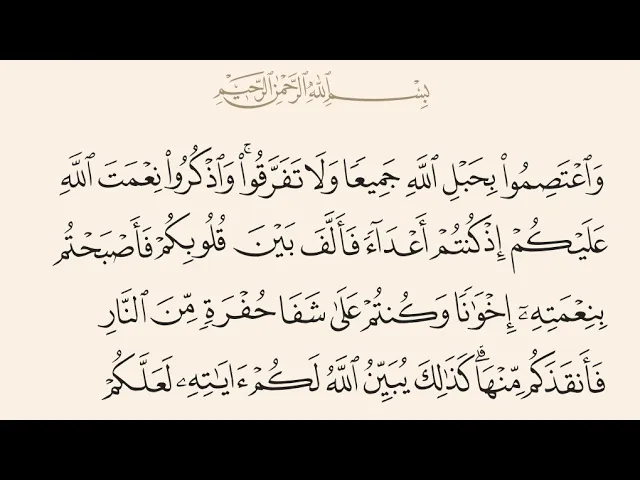 بِسْمِ ٱللَّهِ ٱلرَّحْمَٰنِ ٱلرَّحِيمِ
وَٱعْتَصِمُوا۟ بِحَبْلِ ٱللَّهِ جَمِيعًا وَلَا تَفَرَّقُوا۟ ۚ وَٱذْكُرُوا۟ نِعْمَتَ ٱللَّهِ
عَلَيْكُمْ إِذْ كُنتُمْ أَعْدَآءً فَأَلَّفَ بَيْنَ قُلُوبِكُمْ فَأَصْبَحْتُم
بِنِعْمَتِهِۦٓ إِخْوَٰنًا وَكُنتُمْ عَلَىٰ شَفَا حُفْرَةٍ مِّنَ ٱلنَّارِ
فَأَنقَذَكُم مِّنْهَا ۗ كَذَٰلِكَ يُبَيِّنُ ٱللَّهُ لَكُمْ ءَايَٰتِهِۦ لَعَلَّكُمْ